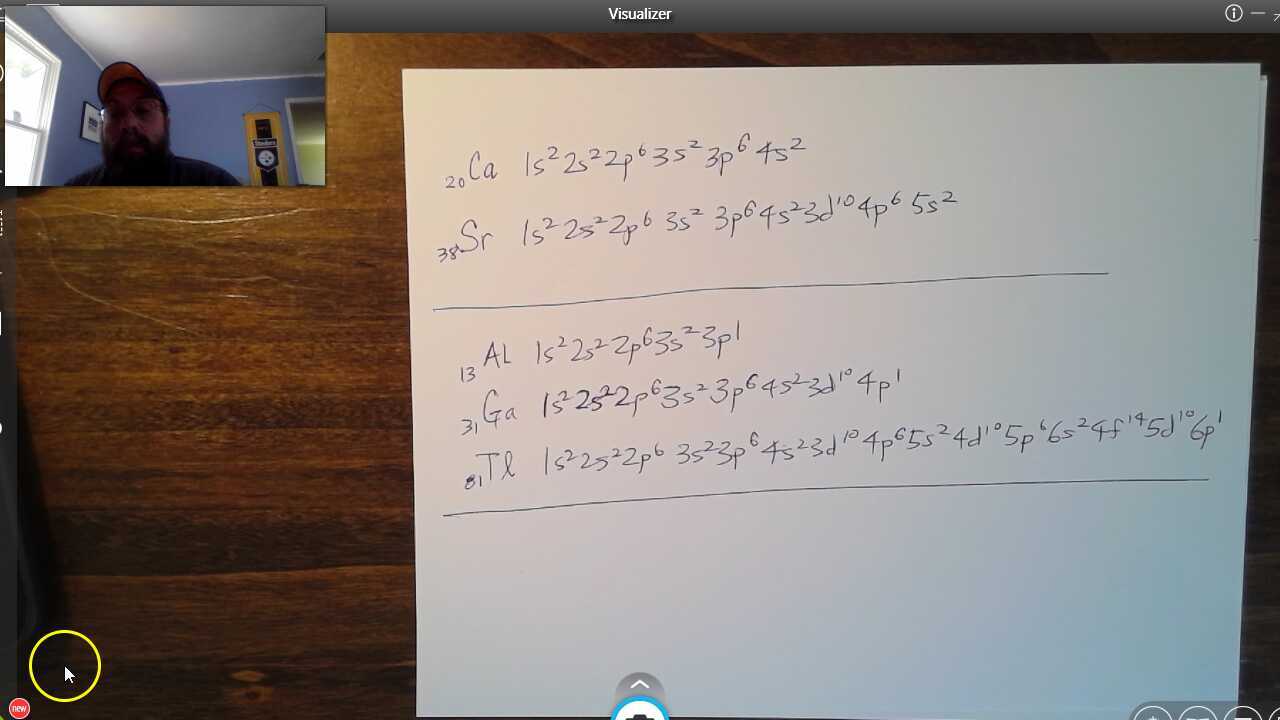 Visualizer
Steelers
₂₀Ca 1s² 2s² 2p⁶ 3s² 3p⁶ 4s²
₃₈Sr 1s² 2s² 2p⁶ 3s² 3p⁶ 4s² 3d¹⁰ 4p⁶ 5s²
₁₃Al 1s² 2s² 2p⁶ 3s² 3p¹
₃₁Ga 1s² 2s² 2p⁶ 3s² 3p⁶ 4s² 3d¹⁰ 4p¹
₈₁Tl 1s² 2s² 2p⁶ 3s² 3p⁶ 4s² 3d¹⁰ 4p⁶ 5s² 4d¹⁰ 5p⁶ 6s² 4f¹⁴ 5d¹⁰ 6p¹
new